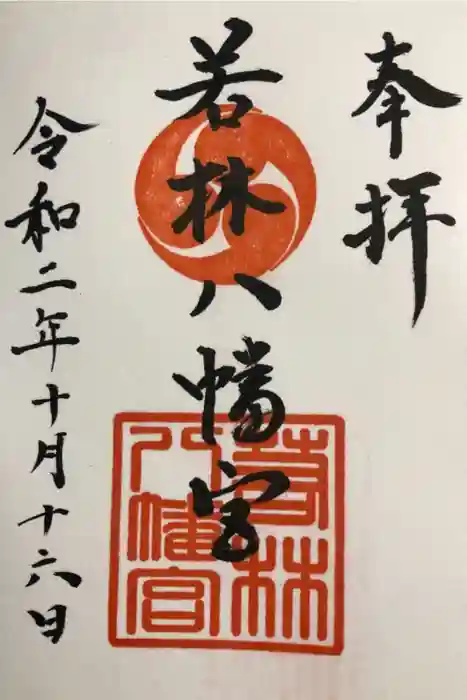 奉拝
若林八幡宮
令和二年十月十六日
若林
八幡宮